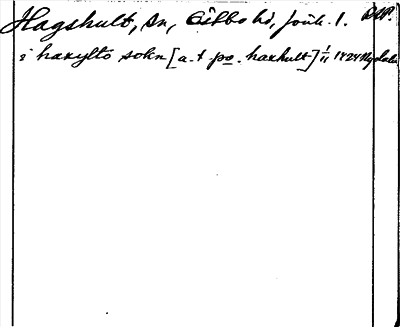 Hagshult, sn, Östbo hd, Jönk. l. DMP.
i haxylto sokn [a. t. po. haxhult] 1/11 1424 Nydala